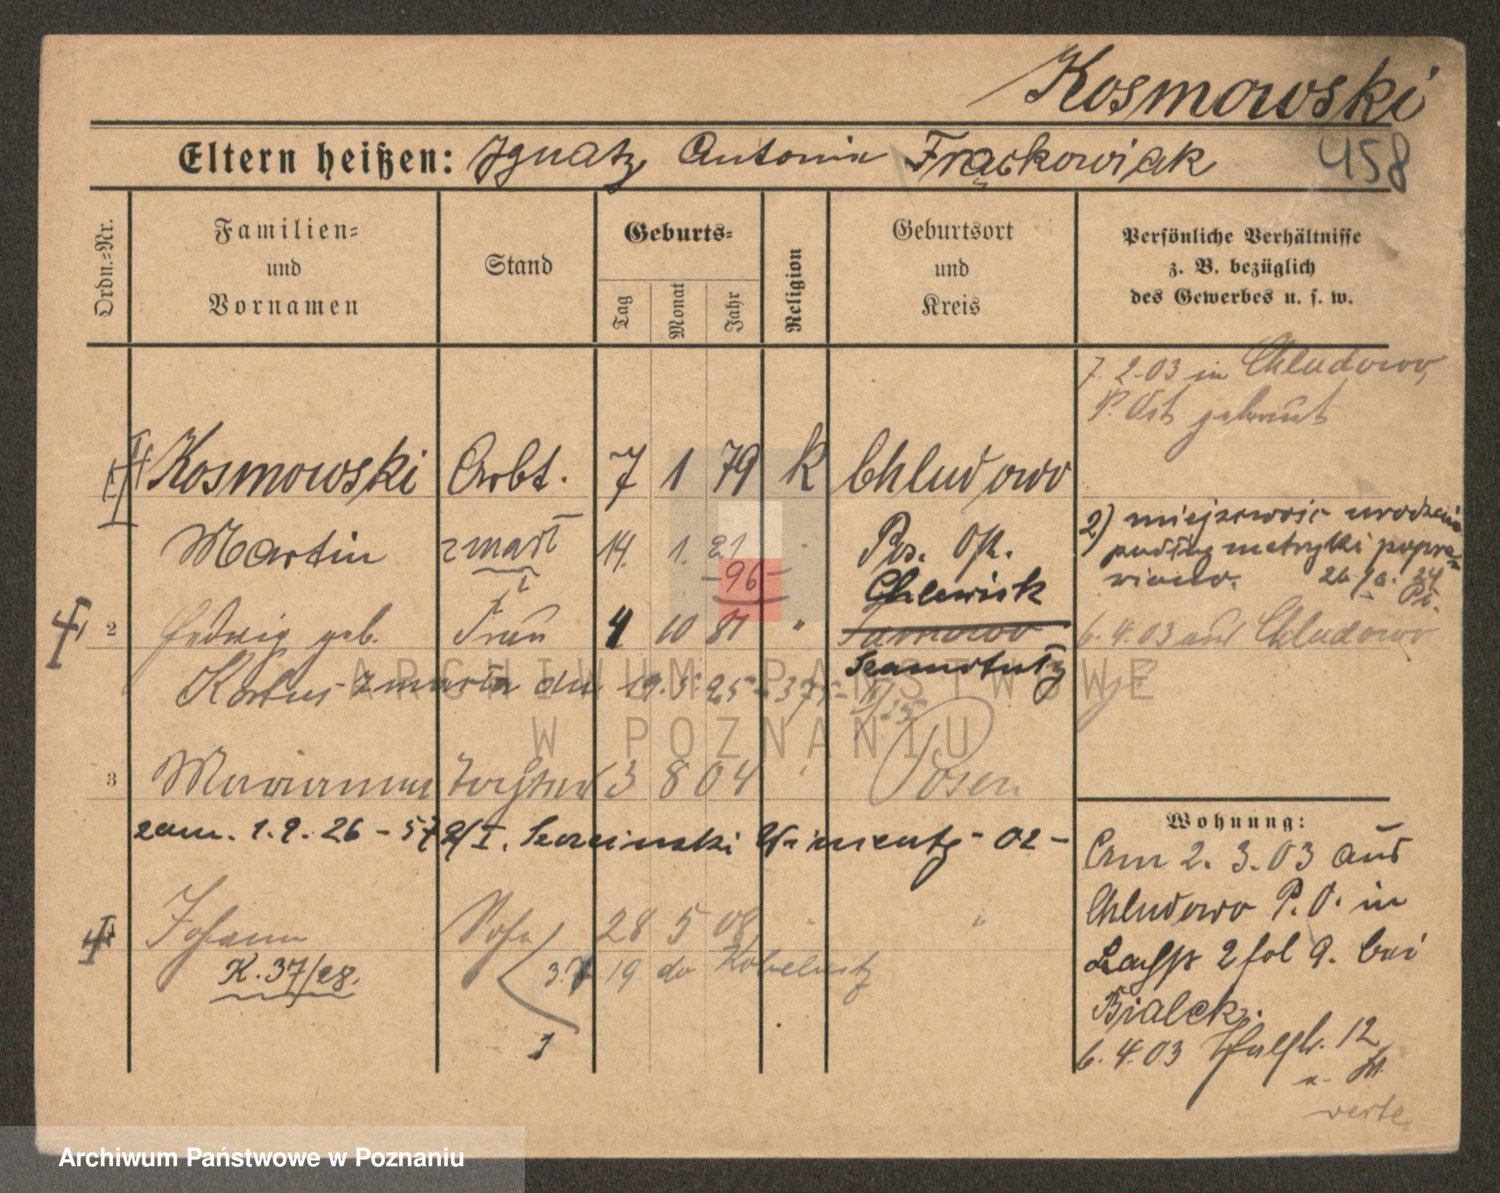 Kosmowski
458
Eltern heißen: Ignatz Antonia Frąckowiak
Ordn.-Nr.
Familien- und Vornamen
Stand
Geburts-
Tag
Monat
Jahr
Religion
Geburtsort und Kreis
Persönliche Verhältnisse z. B. bezüglich des Gewerbes u. s. w.
7. 2. 03 in Chludowo,
P. Ost getraut
Kosmowski Arbt. 7 1 79 K Chludowo
Martin zmarł 14. 1. 21 Ps. Ost.
-96-
2) miejscowość urodzenia
podług metryki popra-
wiono. 26/9. 24
Chlewisk
2 Hedwig geb. Frau 4 10 81 " 
Samotulty
6. 4. 03 aus Chludowo
Korbus zmarła dn. 19. 5. 25 - 375-
3 Marianna Tochter 3 8 04 " Posen
zam. 1. 9. 26 - Wincenty - 02 -
Wohnung:
Am 2. 3. 03 aus
Chludowo P. O. in
2 fol 9. bei
Bialek.
6. 4. 03 12
verte
Johann Sohn 28 5 08 " "
K. 37/28.
3. 7 19 do Kobelnitz
1
ARCHIWUM PAŃSTWOWE
W POZNANIU
Archiwum Państwowe w Poznaniu